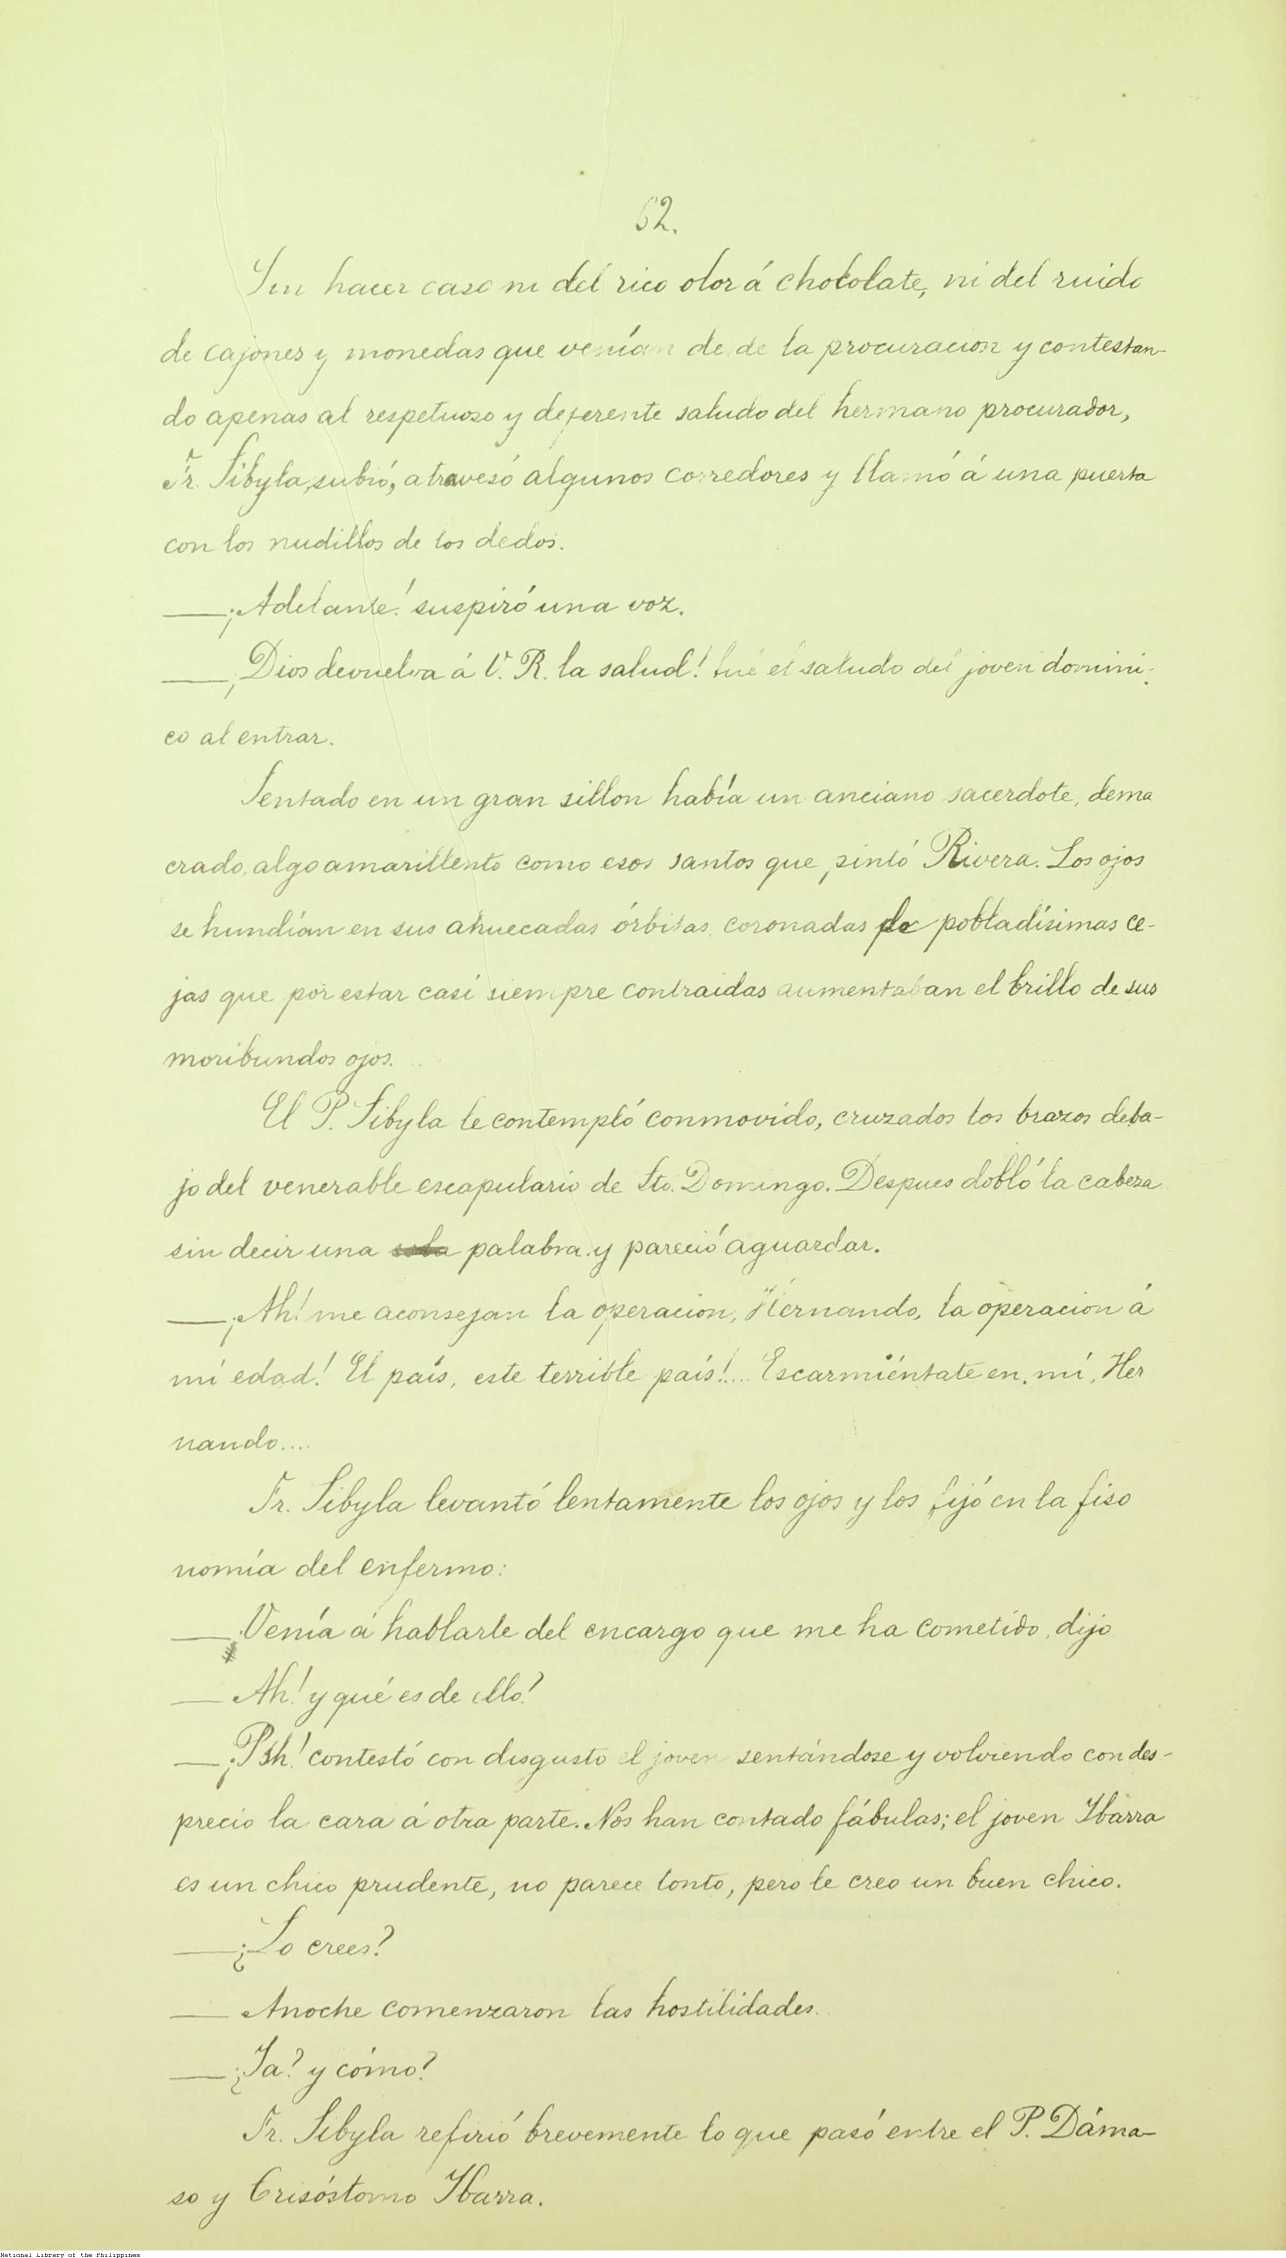 62.
Sin hacer caso ni del rico olor á chocolate, ni del ruido
de cajones y monedas que venían de de la procuracion y contestan-
do apenas al respetuoso y deferente saludo del hermano procurador,
Fr. Sibyla, subió, atravesó algunos corredores y llamó á una puerta
con los nudillos de los dedos.
—¡Adelante! suspiró una voz.
—¡Dios devuelva á V. R. la salud! fué el saludo del joven domini-
co al entrar.
Sentado en un gran sillon había un anciano sacerdote, dema
crado, algo amarillento como esos santos que pintó Rivera. Los ojos
se hundían en sus ahuecadas órbitas, coronadas de pobladísimas ce-
jas que por estar casi siempre contraidas aumentaban el brillo de sus
moribundos ojos.
El P. Sibyla le contempló conmovido, cruzados los brazos deba-
jo del venerable escapulario de Sto. Domingo. Despues dobló la cabeza
sin decir una sola palabra y pareció aguardar.
—¡Ah! me aconsejan la operacion, Hernando, la operacion á
mi edad! El país, este terrible país!.... Escarmiéntate en mí, Her
nando....
Fr. Sibyla levantó lentamente los ojos y los fijó en la fiso
nomía del enfermo:
— Venía á hablarle del encargo que me ha cometido, dijo
— Ah! y qué es de ello?
—¡Psh! contestó con disgusto el joven sentándose y volviendo con des-
precio la cara á otra parte. Nos han contado fábulas; el joven Ibarra
es un chico prudente, no parece tonto, pero le creo un buen chico.
—¿Lo crees?
— Anoche comenzaron las hostilidades.
—¿Ya? y cómo?
Fr. Sibyla refirió brevemente lo que pasó entre el P. Dáma-
so y Crisóstomo Ibarra.
National Library of the Philippines